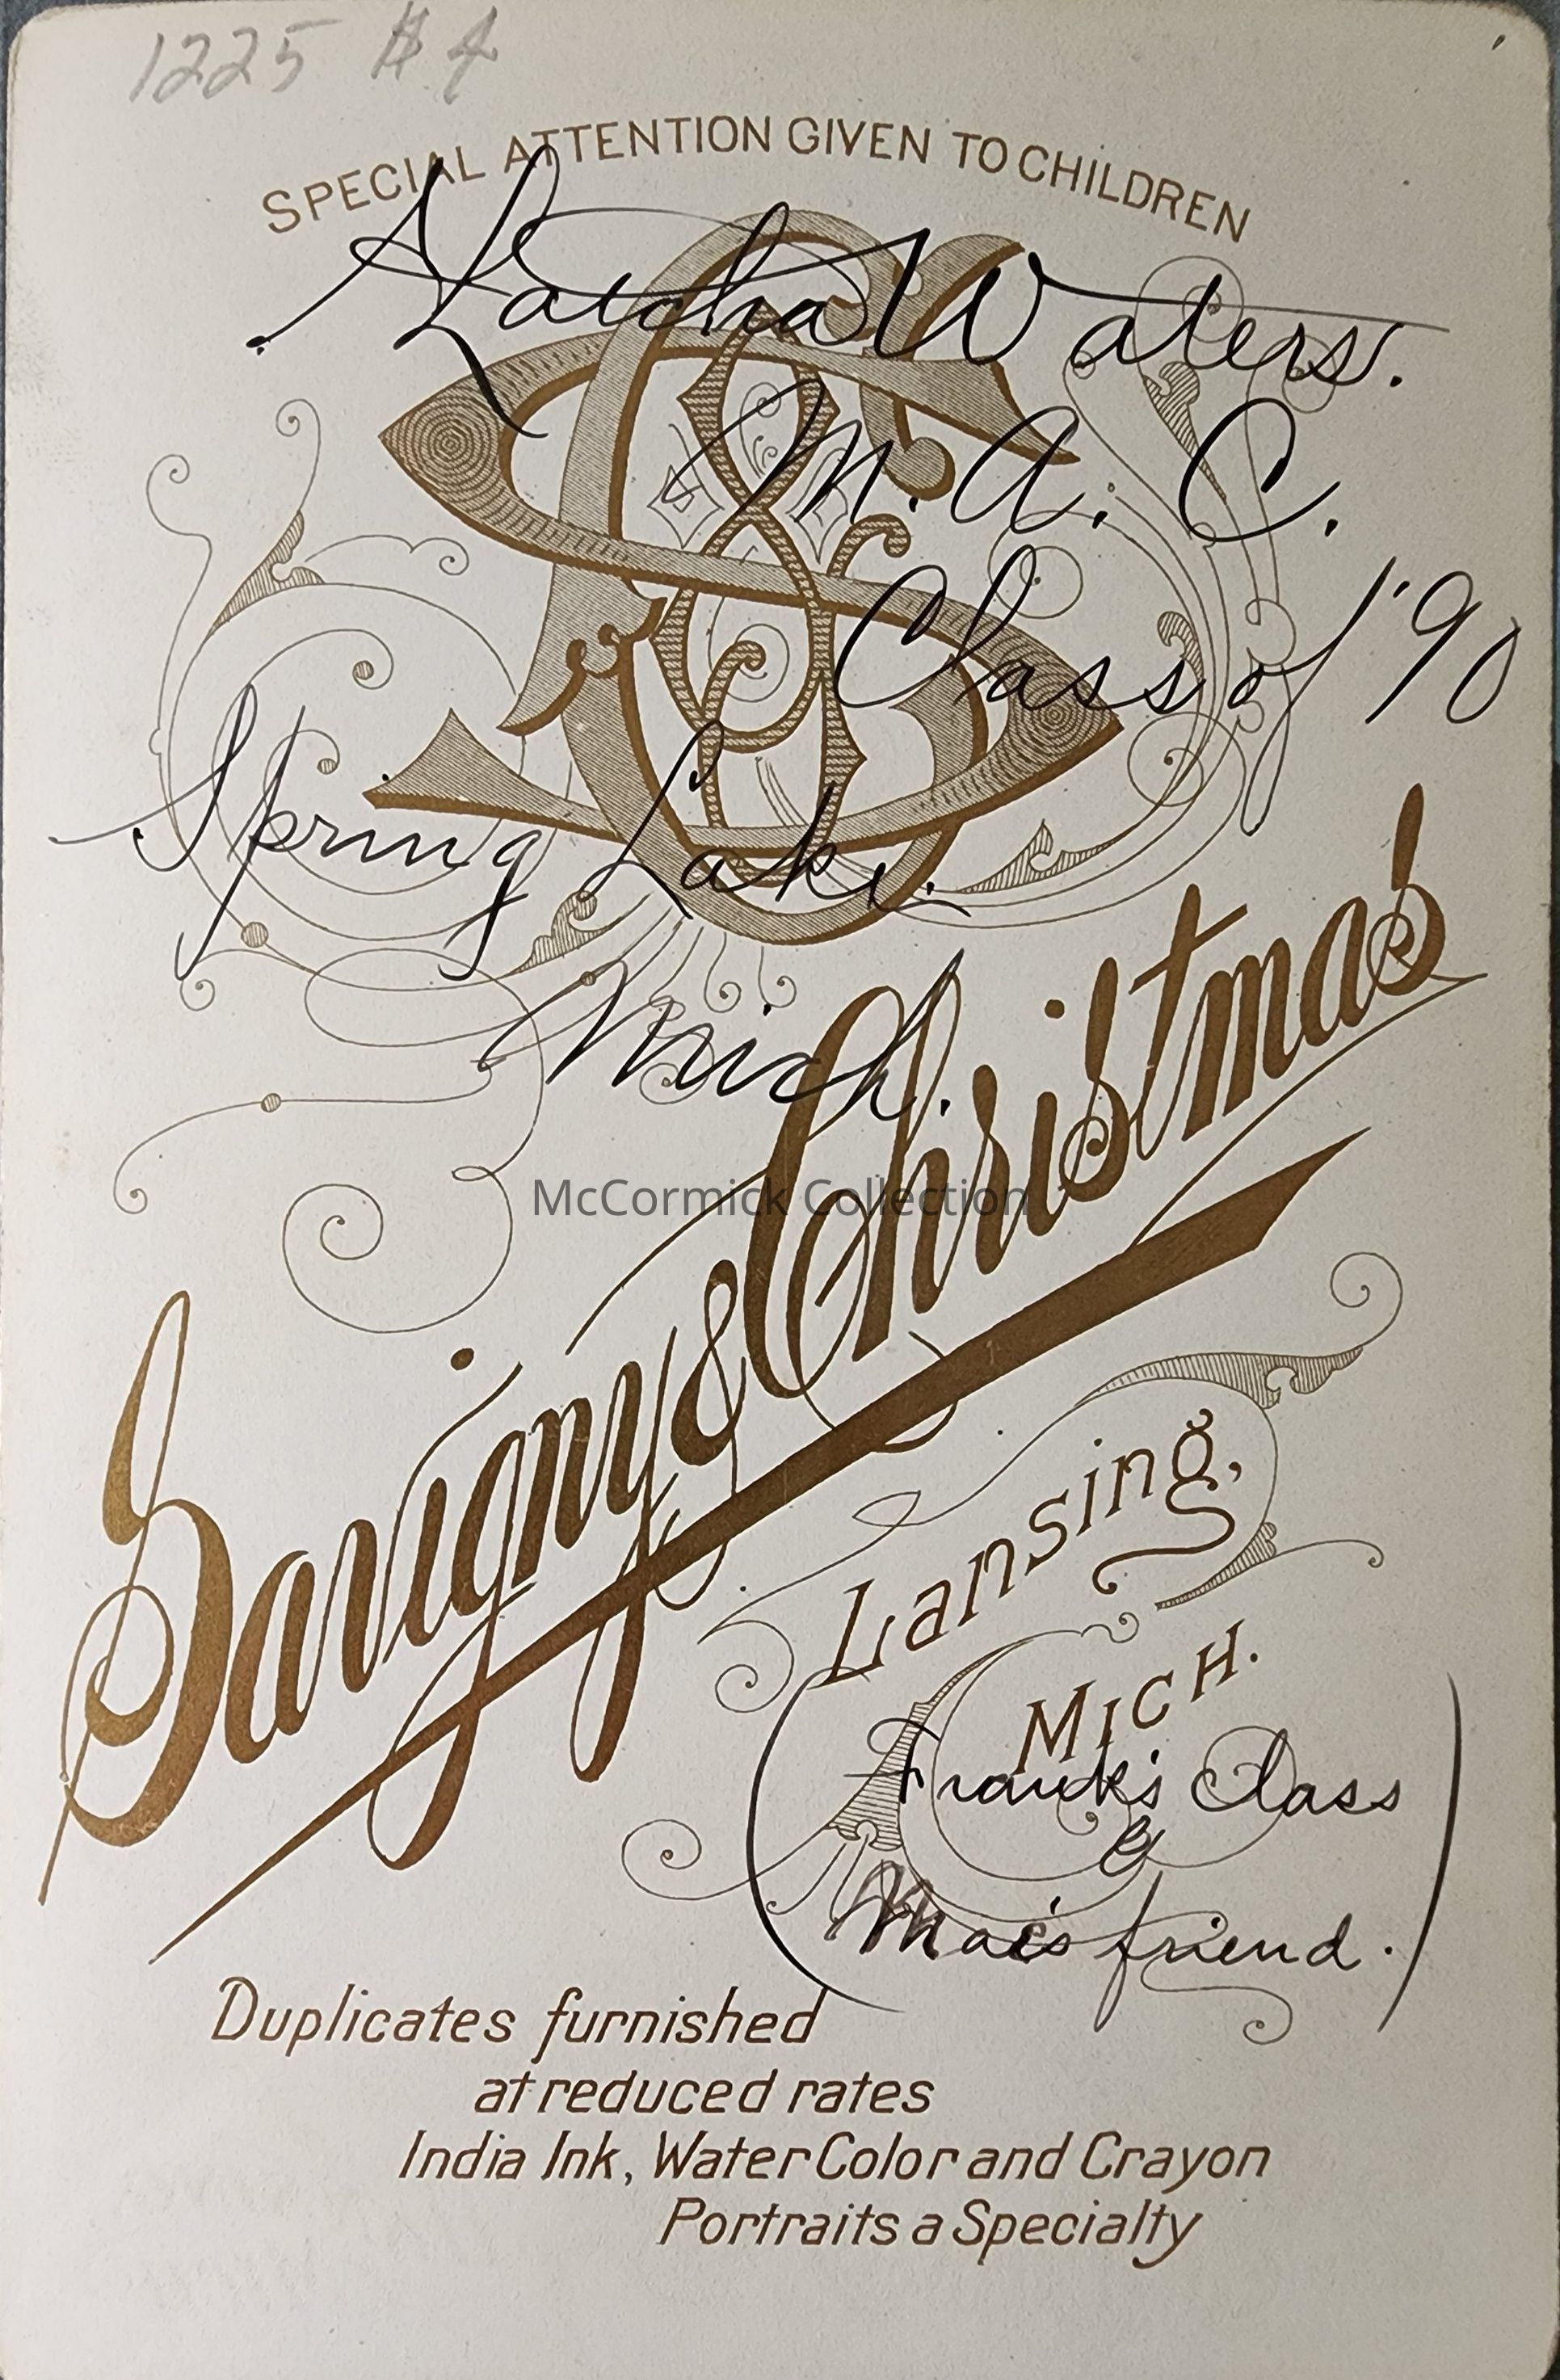 1225 #4
SPECIAL ATTENTION GIVEN TO CHILDREN
Waters.
M. A. C.
Class of '90
Spring Lake.
Mich.
McCormick Collection
Savigny & Christmas
Lansing,
MICH.
(Frank's Class
&
Mac's friend.)
Duplicates furnished
at reduced rates
India Ink, Water Color and Crayon
Portraits a Specialty